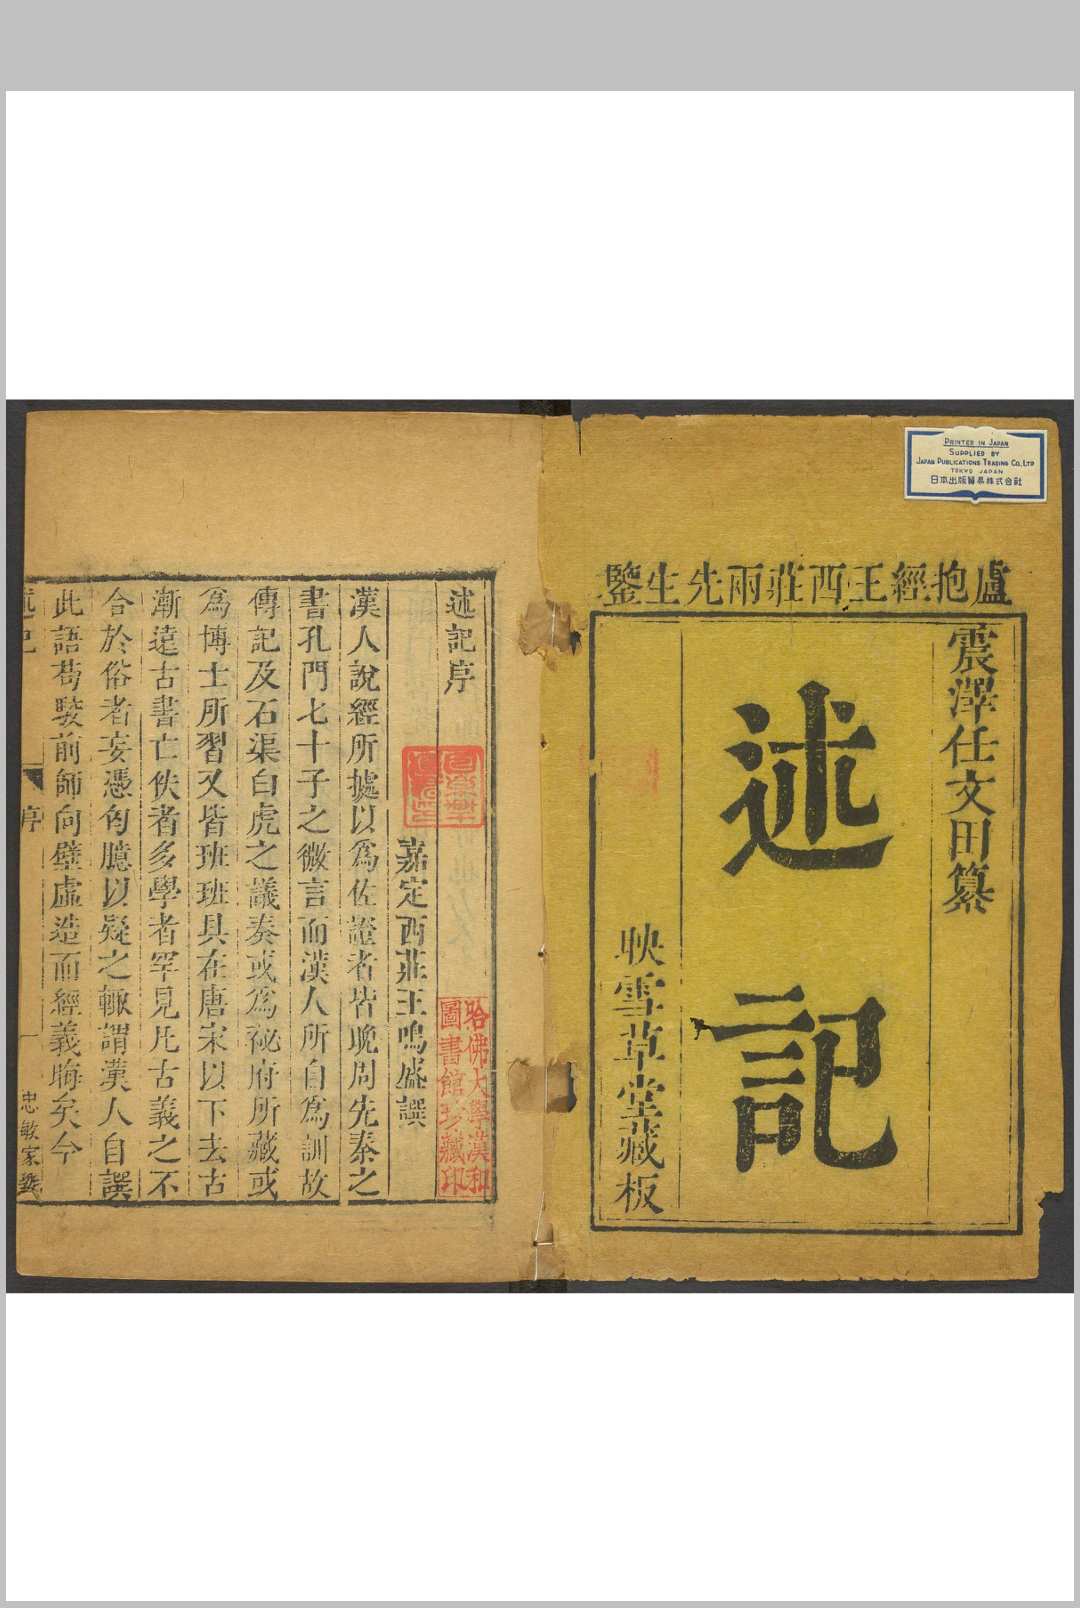 PRINTED IN JAPAN
SUPPLIED BY
JAPAN PUBLICATIONS TRADING CO., LTD
TOKYO JAPAN
日本出版貿易株式会社
盧抱經王西莊兩先生鑒
震澤任文田纂
述記
映雪草堂藏板
述記序
嘉定西莊王鳴盛譔
哈佛大學漢和
圖書館珍藏印
漢人說經所據以爲佐證者皆晚周先秦之
書孔門七十子之微言而漢人所自爲訓故
傳記及石渠白虎之議奏或爲祕府所藏或
爲博士所習又皆班班具在唐宋以下去古
漸遠古書亡佚者多學者罕見凡古義之不
合於俗者妄憑匈臆以疑之輒謂漢人自譔
此語苟駮前師向壁虛造而經義晦矣今
述記
序
一
忠敏家塾